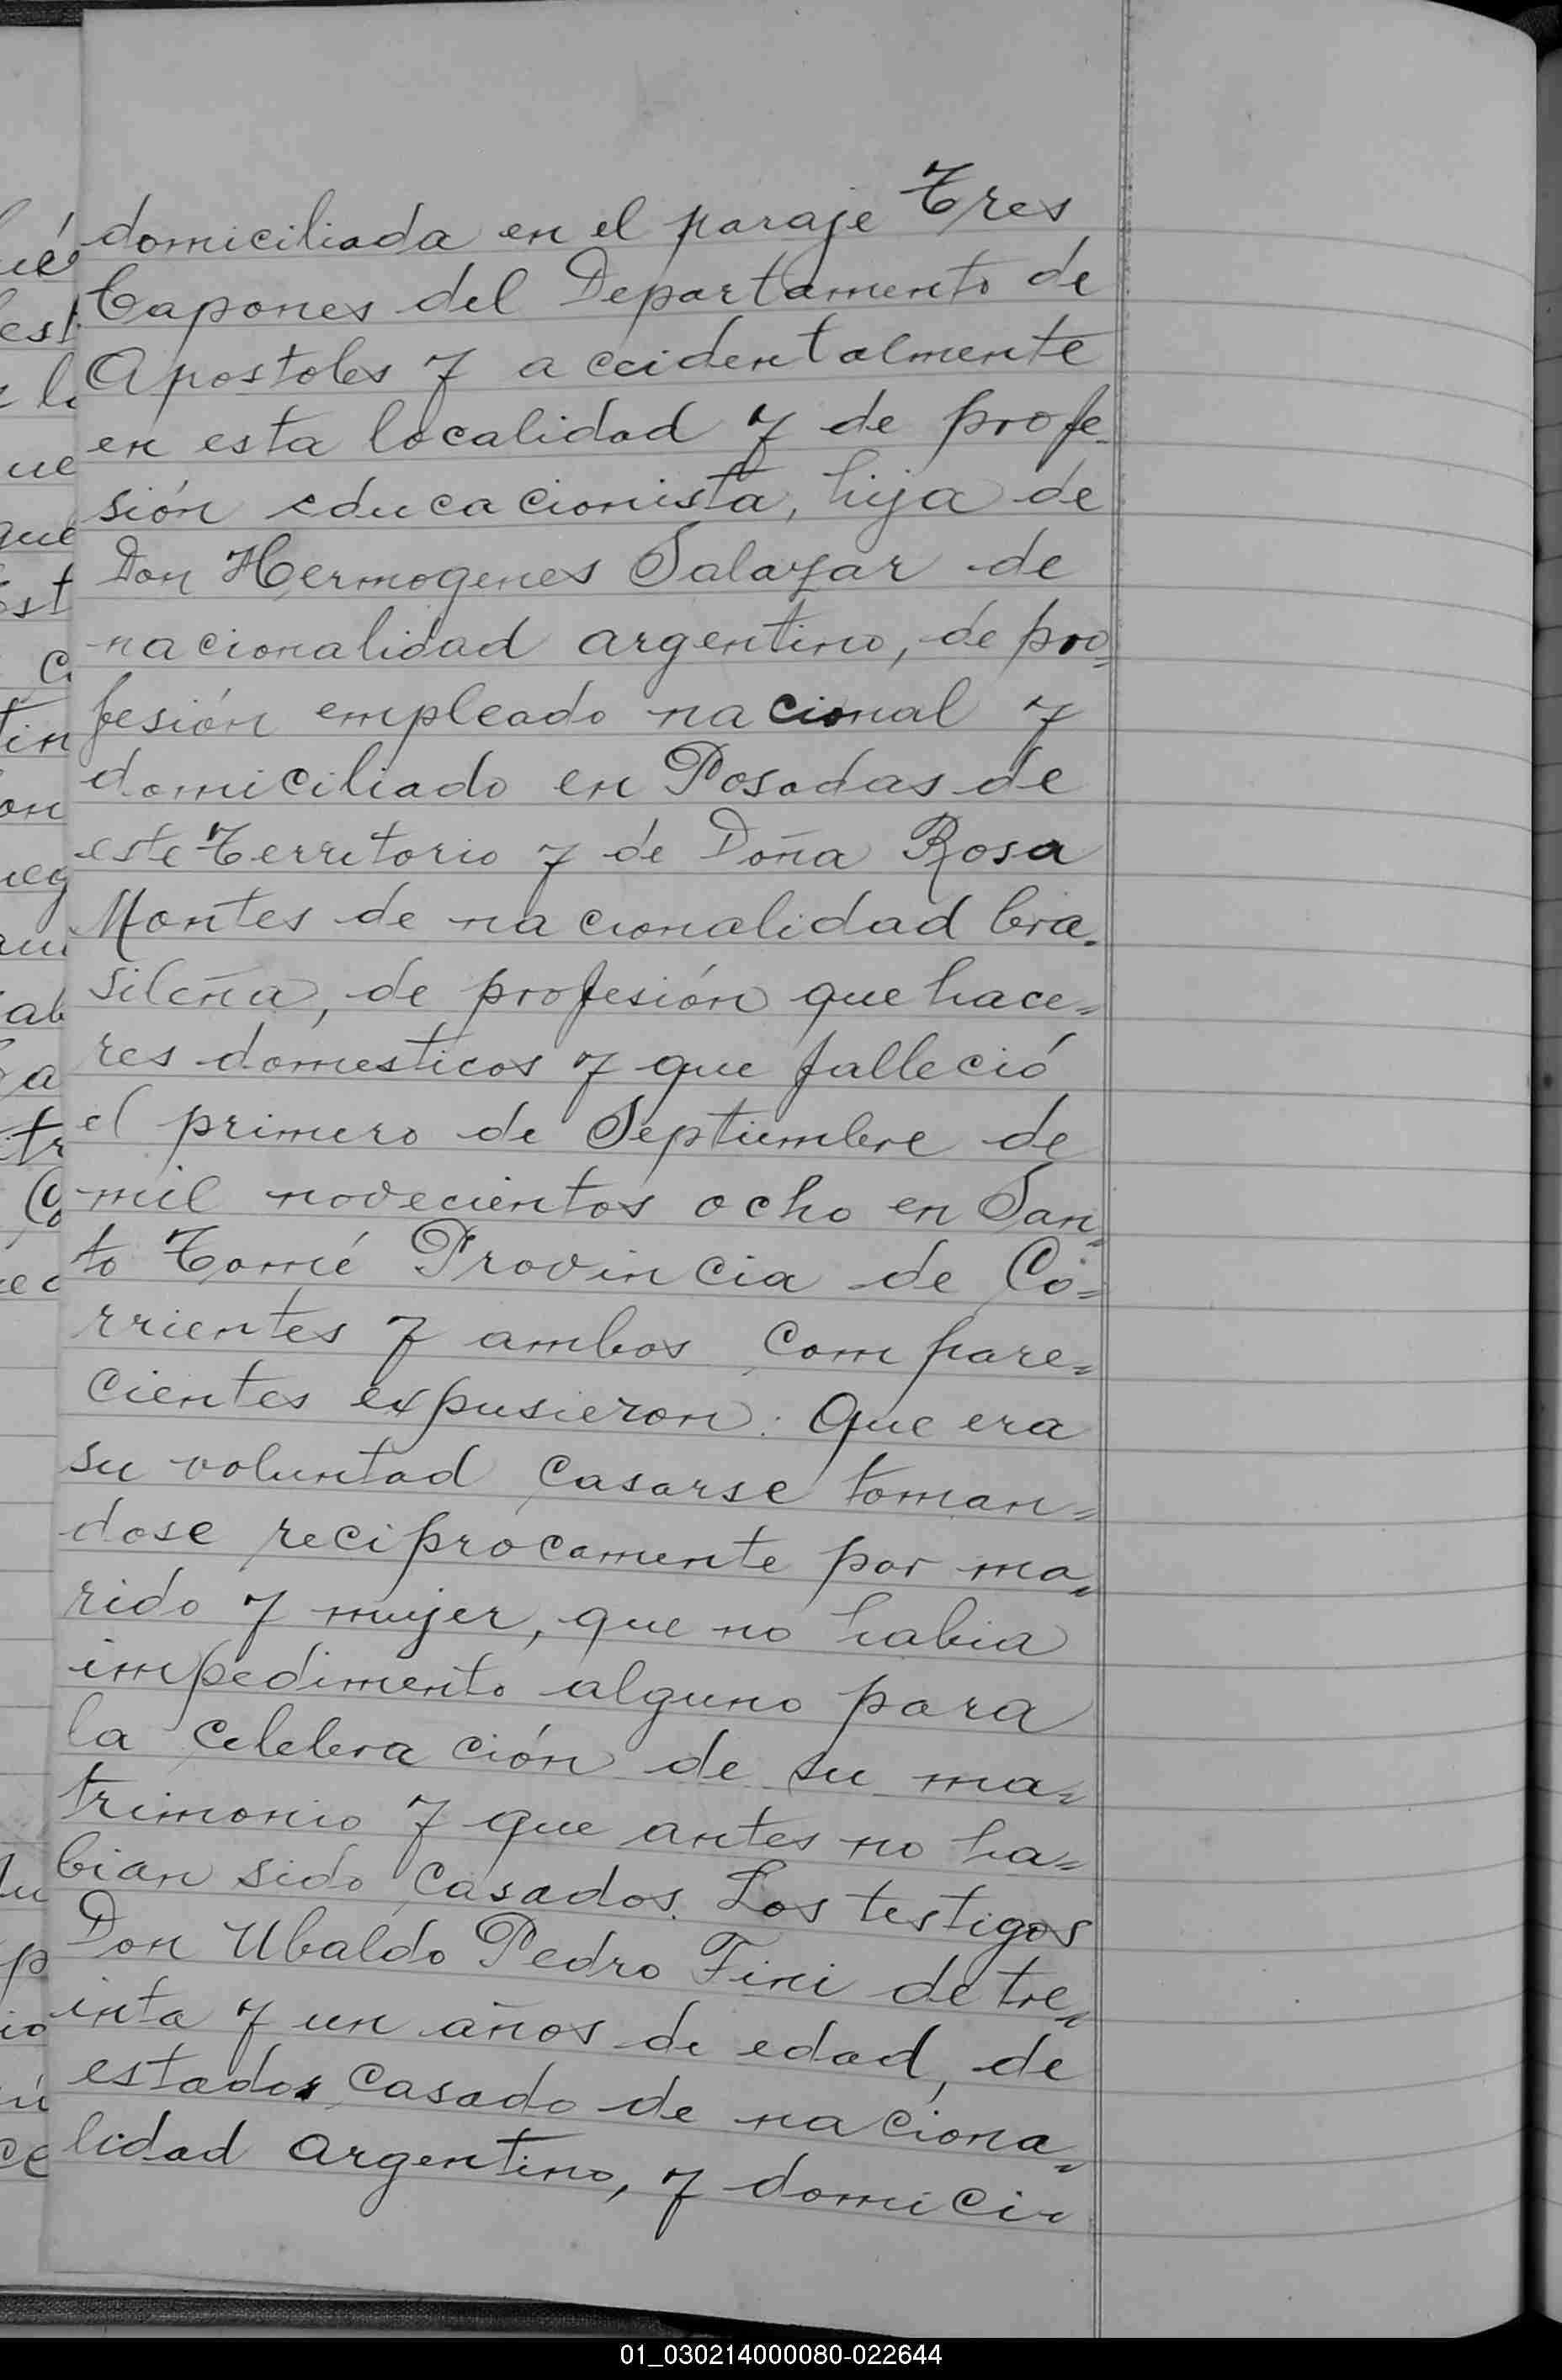 domiciliada en el paraje Tres
Capones del Departamento de
Apostoles y accidentalmente
en esta localidad y de profe-
sión educacionista, hija de
Don Hermogenes Salazar de
nacionalidad argentino, de pro=
fesión empleado nacional y
domiciliado en Posadas de
este Territorio y de Doña Rosa
Montes de nacionalidad bra=
sileña, de profesión que hace=
res domesticos y que falleció
el primero de Septiembre de
mil novecientos ocho en San=
to Tomé Provincia de Co=
rrientes y ambos compare=
cientes expusieron: Que era
su voluntad casarse toman=
dose reciprocamente por ma=
rido y mujer, que no habia
impedimento alguno para
la celebración de su ma=
trimonio y que antes no ha=
bian sido casados. Los testigos
Don Ubaldo Pedro Fini de tre=
inta y un años de edad, de
estado casado de naciona=
lidad argentino, y domici=
01_030214000080-022644